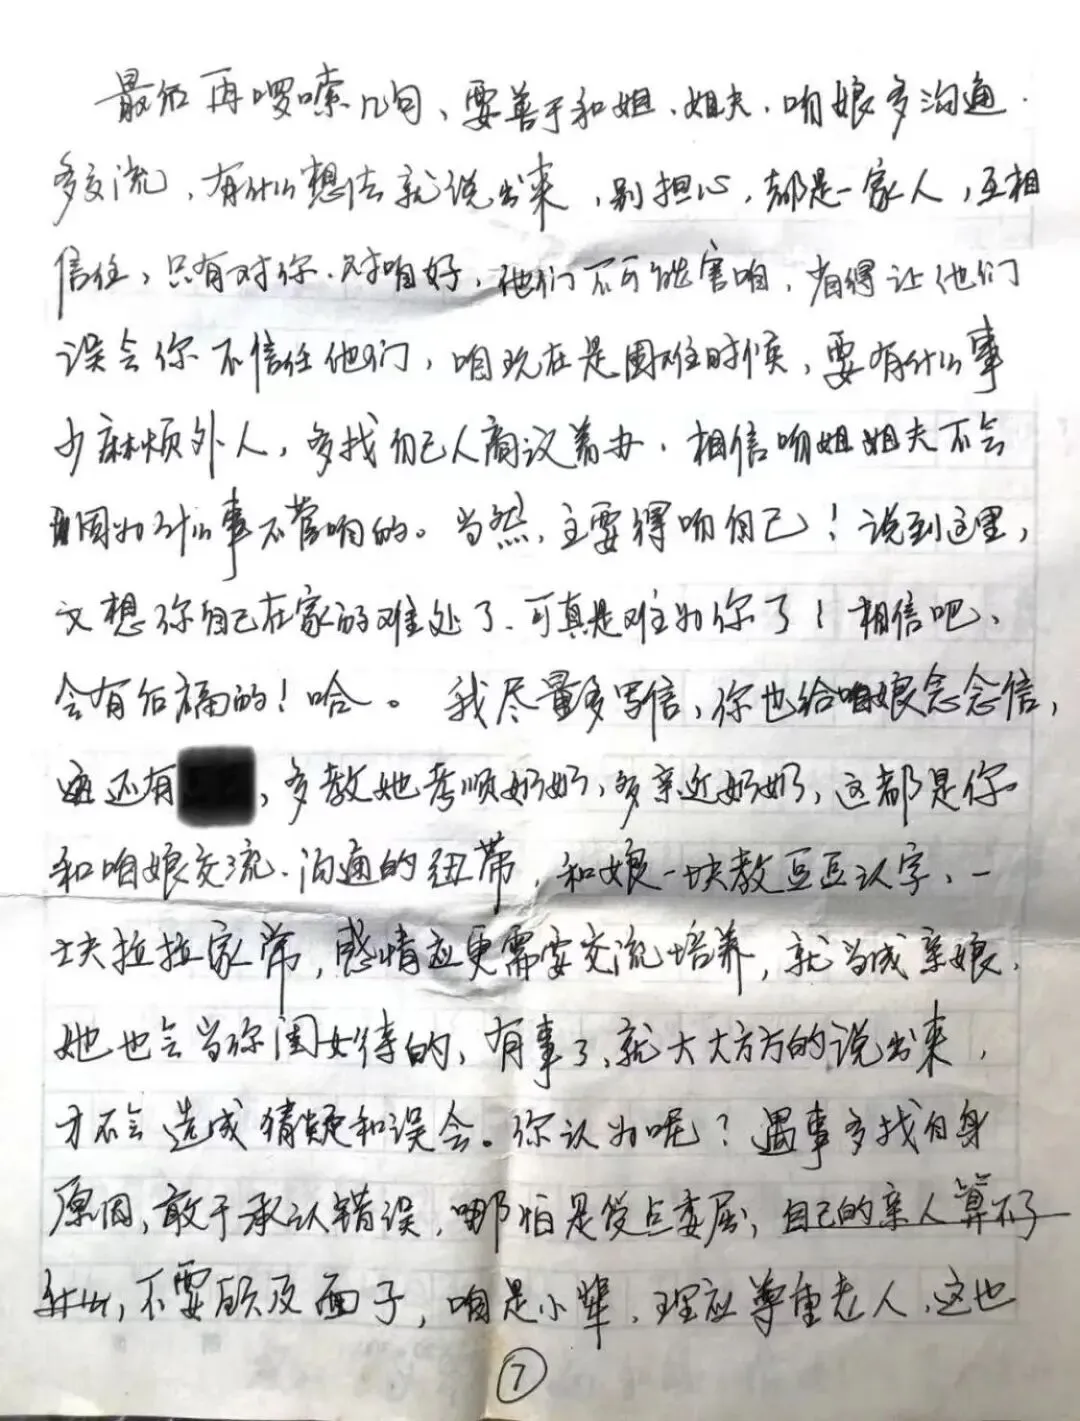 最后再啰嗦几句、要善于和姐、姐夫、咱娘多沟通.
多交流,有什么想法就说出来,别担心,都是一家人,互相
信任,只有对你、对咱好,他们不可能害咱,省得让他们
误会你不信任他们,咱现在是困难时候,要有什么事
少麻烦外人,多找自己人商议着办,相信咱姐姐夫不会
因为什么事不管咱的。当然,主要得咱自己!说到这里,
又想你自己在家的难处了、可真是难为你了!相信吧、
会有后福的!哈。 我尽量多写信,你也给咱娘念念信,
还有 ,多教她孝顺奶奶,多亲近奶奶,这都是你
和咱娘交流、沟通的纽带,和娘一块教豆豆认字、一
块拉拉家常,感情应更需要交流培养,就当成亲娘,
她也会当你闺女待的,有事了,就大大方方的说出来,
才不会造成猜疑和误会。你认为呢?遇事多找自身
原因,敢于承认错误,哪怕是受点委屈,自己的亲人算不了
不要顾及面子,咱是小辈,理应尊重老人,这也
7